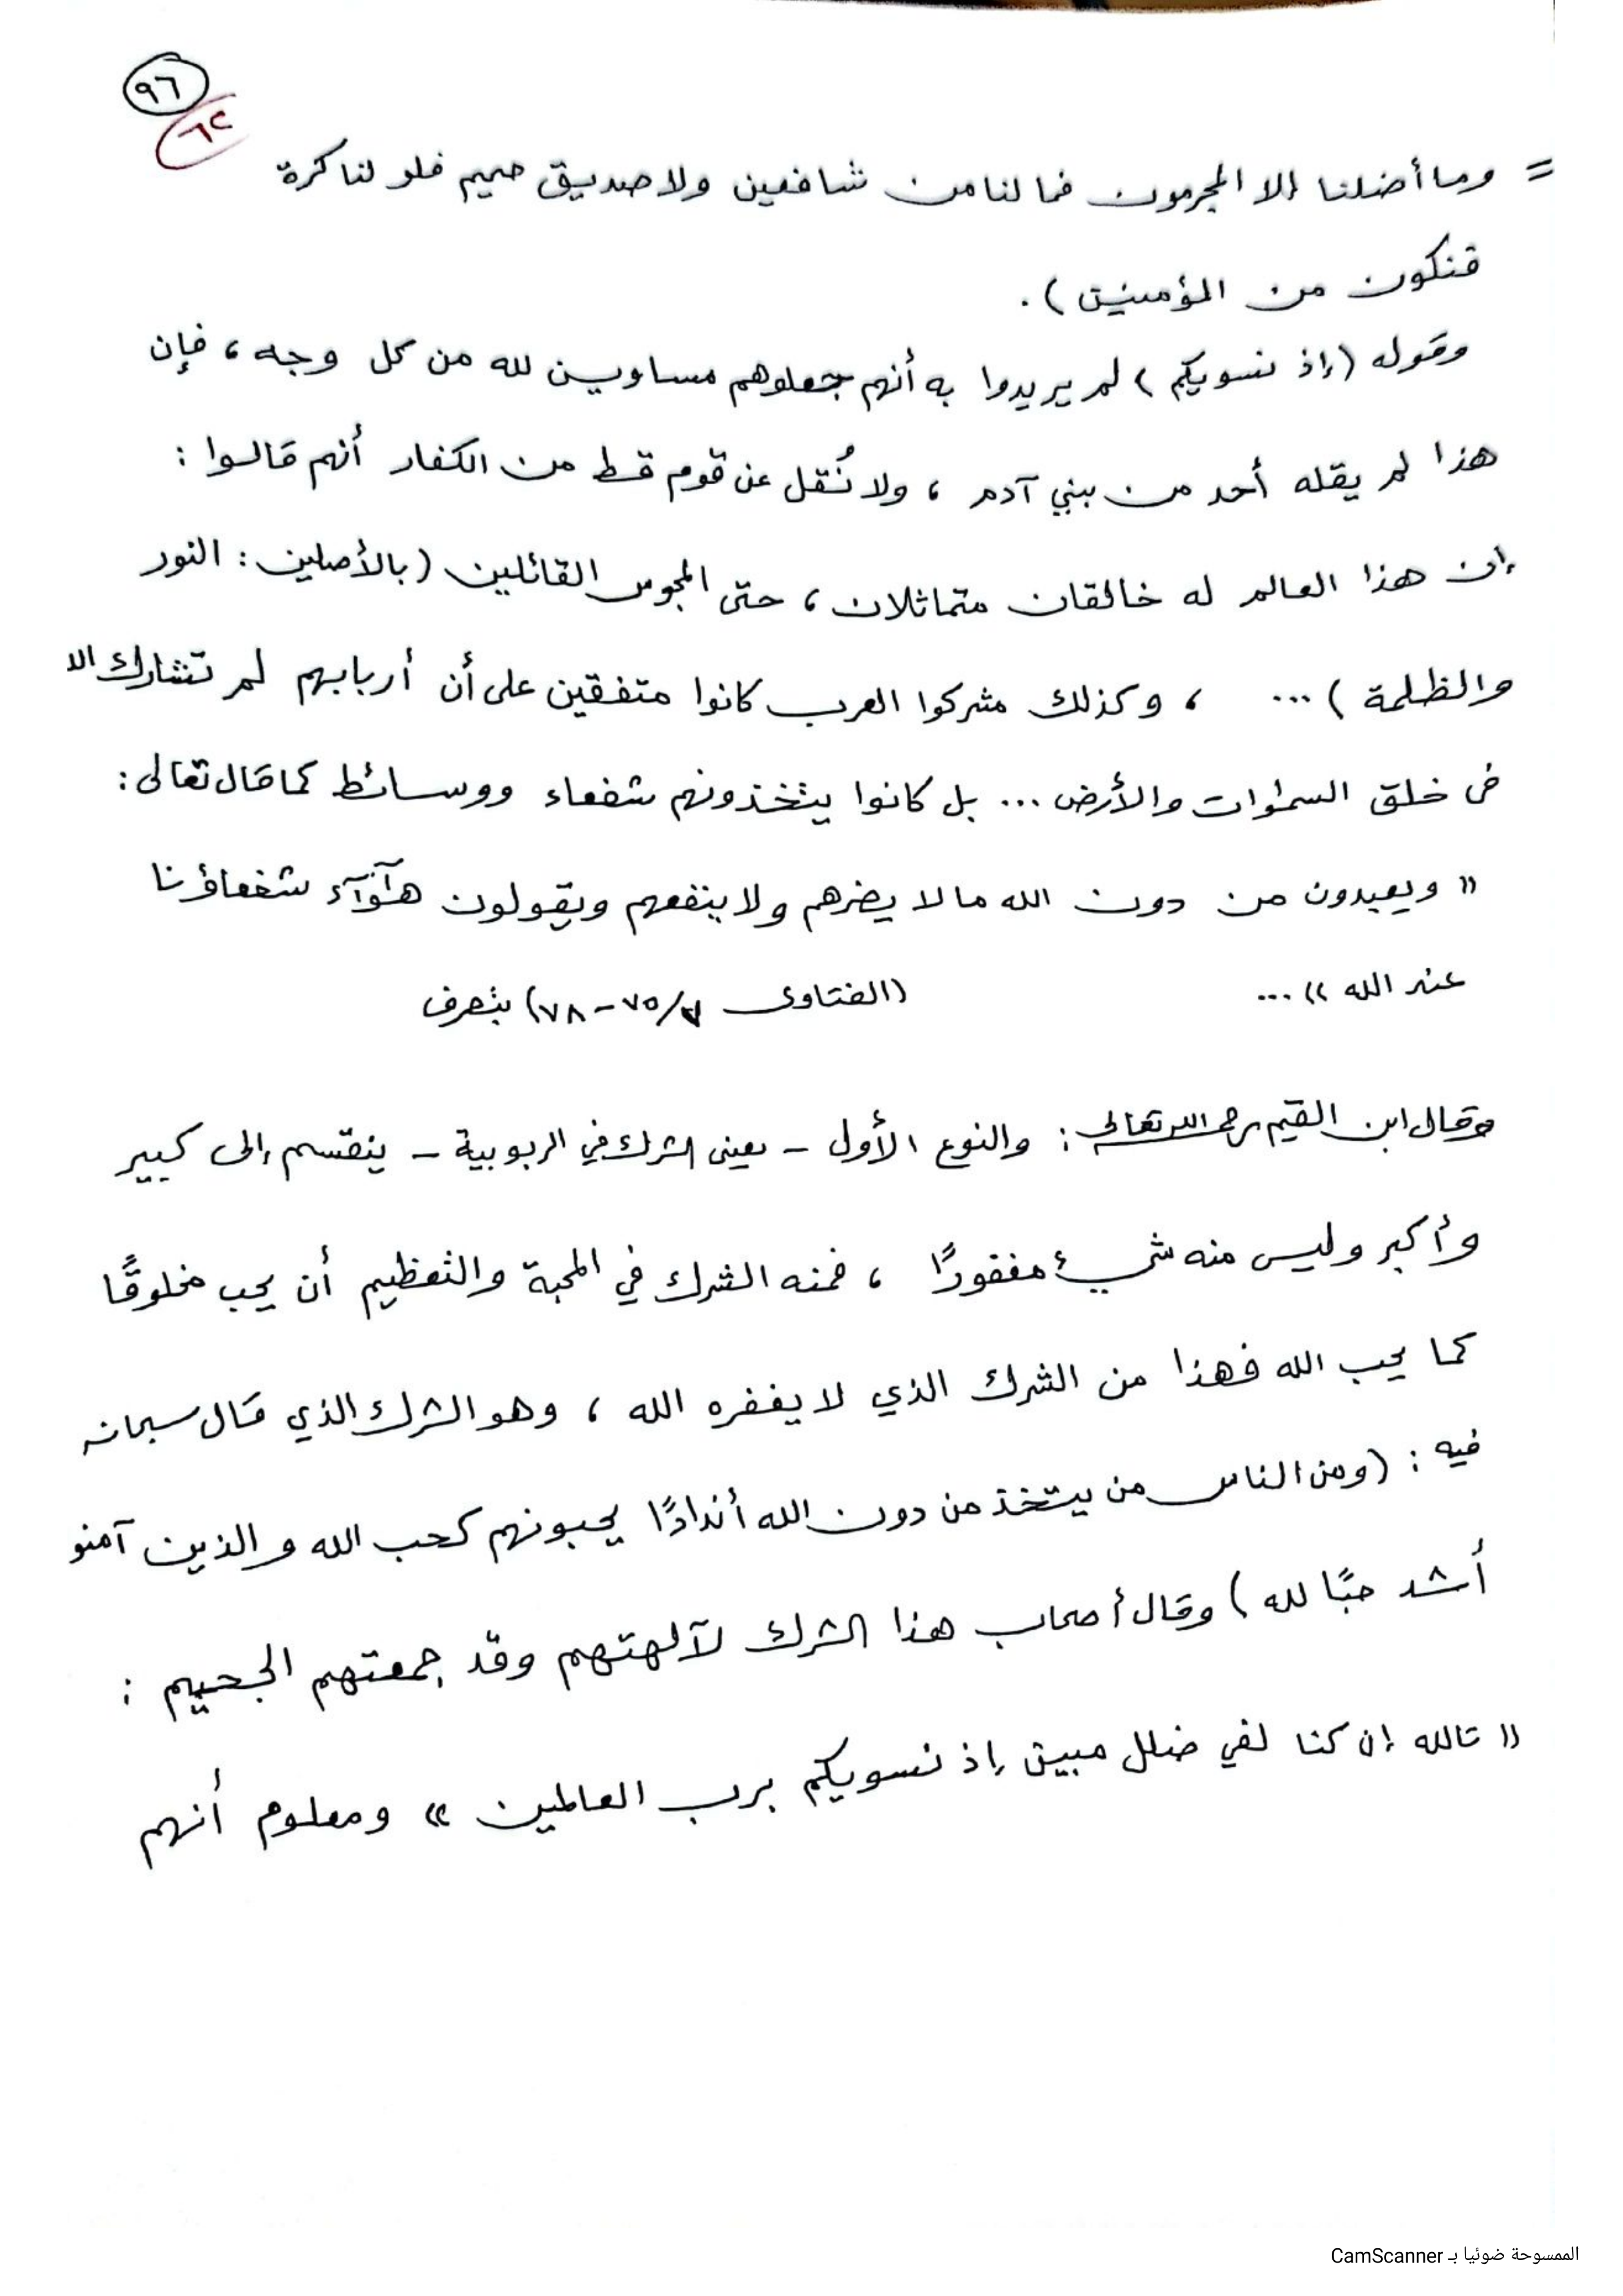 ٩٦
٦٢
= وما أضلنا إلا المجرمون فما لنا من شافعين ولا صديق حميم فلو لنا كرة
فنكون من المؤمنين ) .
وقوله (إذ نسويكم ) لم يريدوا به أنهم جعلوهم مساوين لله من كل وجه ، فإن
هذا لم يقله أحد من بني آدم ، ولا نُقل عن قوم قط من الكفار أنهم قالوا :
إن هذا العالم له خالقان متماثلان ، حتى المجوس القائلين (بالأصلين : النور
والظلمة ) ... ، وكذلك مشركوا العرب كانوا متفقين على أن أربابهم لم تشارك الله
في خلق السموات والأرض ... بل كانوا يتخذونهم شفعاء ووسائط كما قال تعالى :
" ويعبدون من دون الله ما لا يضرهم ولا ينفعهم ويقولون هآؤلآء شفعاؤنا
عند الله " ... (الفتاوى ٧٥/٧ – ٧٨) بتصرف
وقال ابن القيم رحمه الله تعالى : والنوع الأول – يعني الشرك في الربوبية – ينقسم إلى كبير
وأكبر وليس منه شيء مغفورًا ، فمنه الشرك في المحبة والتعظيم أن يحب مخلوقًا
كما يحب الله فهذا من الشرك الذي لا يغفره الله ، وهو الشرك الذي قال سبحانه
فيه : (ومن الناس من يتخذ من دون الله أندادًا يحبونهم كحب الله والذين آمنو
أشد حبًا لله ) وقال أصحاب هذا الشرك لآلهتهم وقد جمعتهم الجحيم :
" تالله إن كنا لفي ضلل مبين إذ نسويكم برب العالمين " ومعلوم أنهم
الممسوحة ضوئيا بـ CamScanner